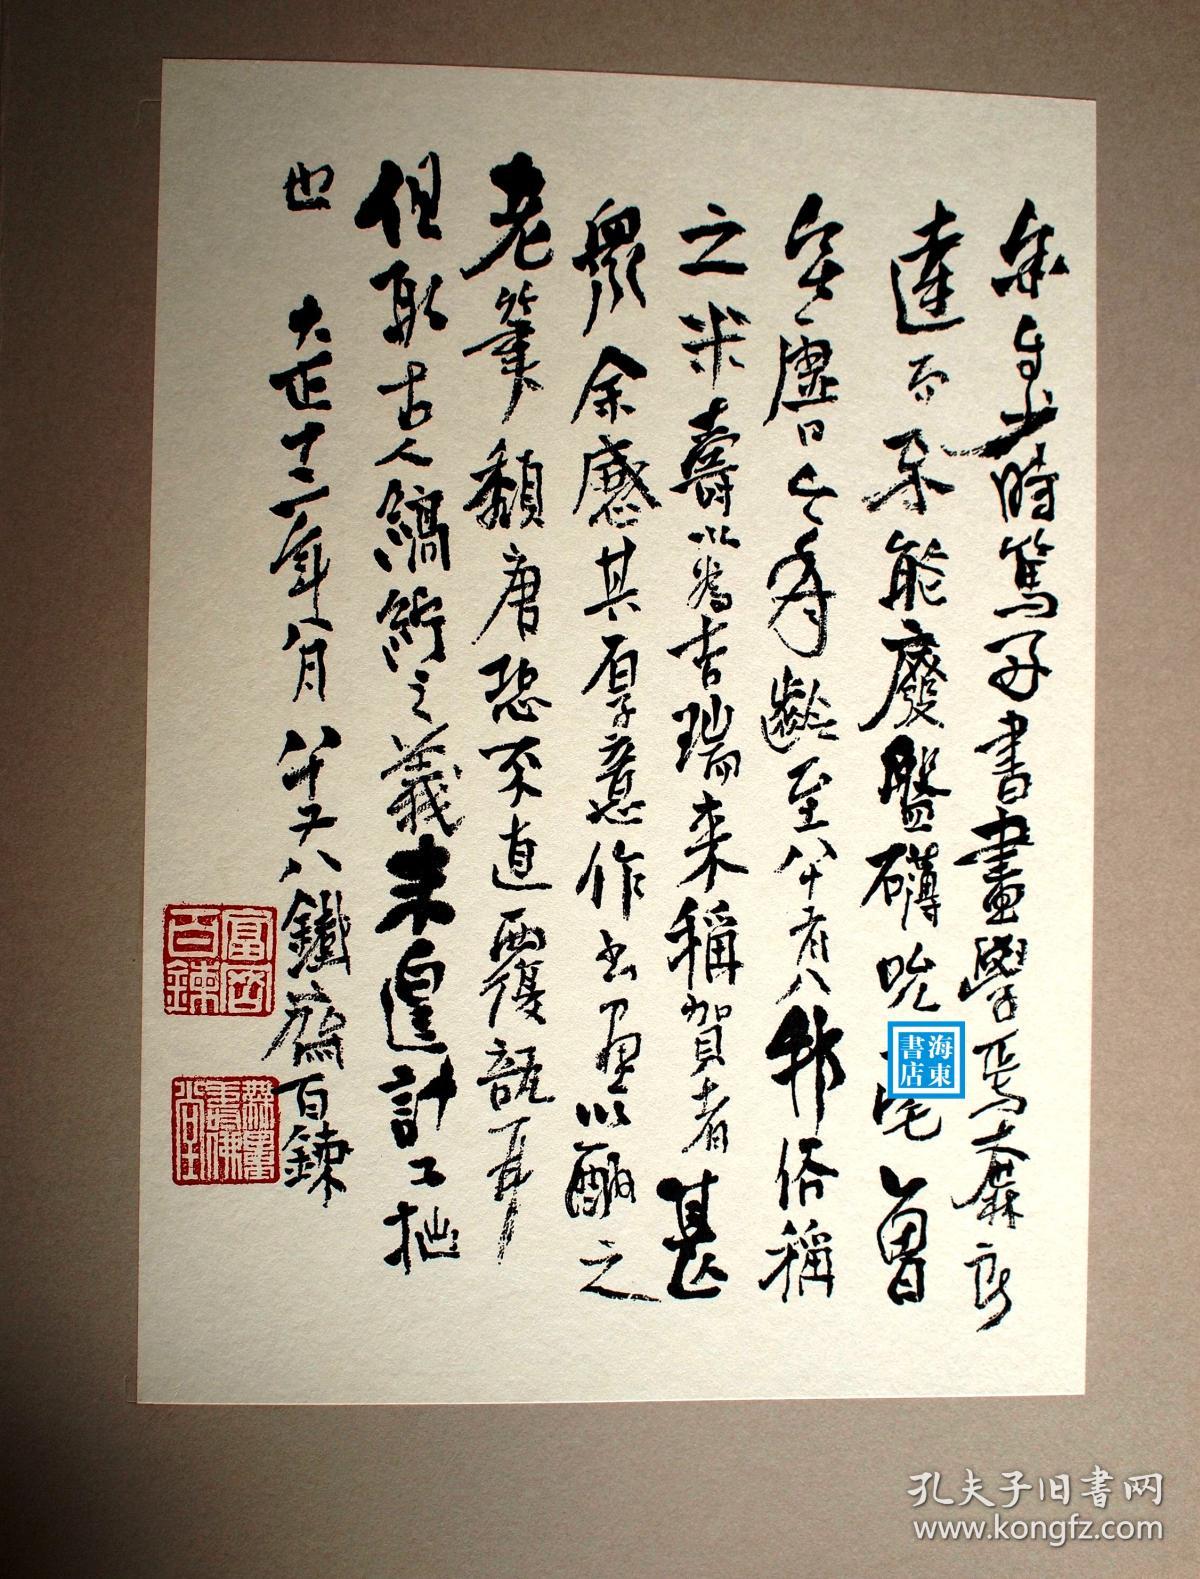 余自少時篤好書畫學焉而未
達而不能廢盤礴吮毫曾
無虛日今年齡至八十有八邦俗稱
之米壽以為吉瑞來稱賀者甚
衆余感其厚意作書画以酬之
老筆頽唐恐不直一覆瓿耳
但取古人縞紵之義未遑計工拙
也 大正十二年八月 八十又八鐵齋百鍊
富岡百鍊
海東書店
孔夫子旧书网
www.kongfz.com